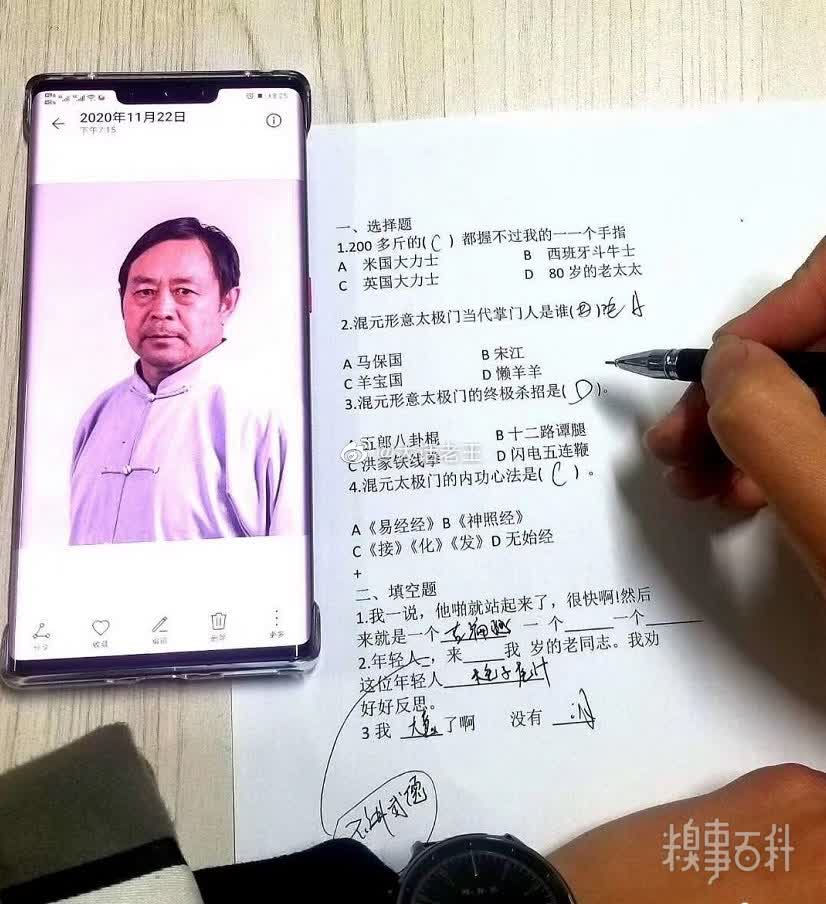 18:25
2020年11月22日
下午7:15
分享
收藏
编辑
删除
更多
一、选择题
1.200 多斤的( C ) 都握不过我的一一个手指
A 米国大力士 B 西班牙斗牛士
C 英国大力士 D 80 岁的老太太
2.混元形意太极门当代掌门人是谁( ) A
A 马保国 B 宋江
C 羊宝国 D 懒羊羊
3.混元形意太极门的终极杀招是( D )。
五郎八卦棍 B 十二路谭腿
C 洪家铁线拳 D 闪电五连鞭
4.混元太极门的内功心法是( C ) 。
A《易经经》B《神照经》
C《接》《化》《发》D 无始经
+
二、填空题
1.我一说，他啪就站起来了，很快啊!然后
来就是一个 一 个 一个
2.年轻人 ，来 我 岁的老同志。我劝
这位年轻人 耗子尾汁
好好反思。
3 我 大意 了啊 没有 闪
不讲武德
老王
糗事百科